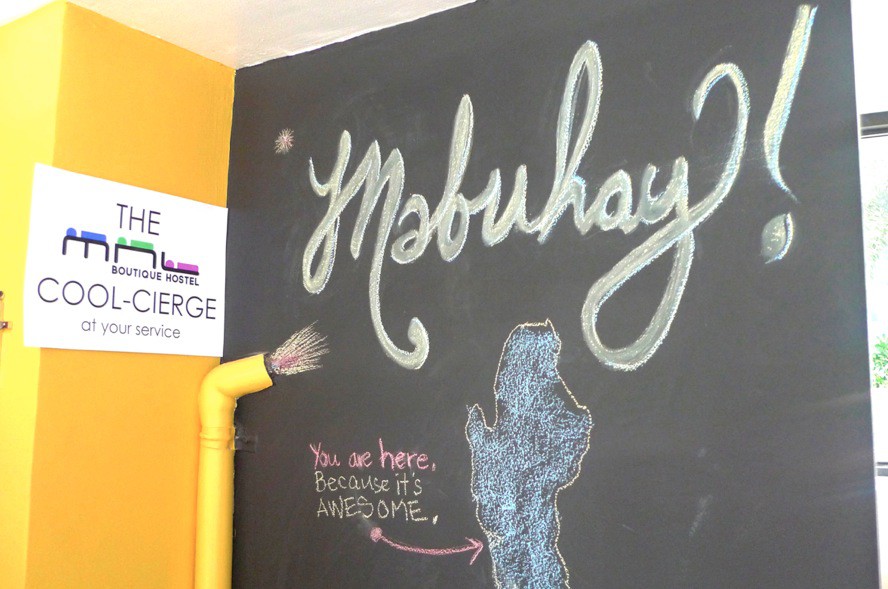 THE
mnl
BOUTIQUE HOSTEL
COOL-CIERGE
at your service
Mabuhay!
You are here.
Because it's
AWESOME.